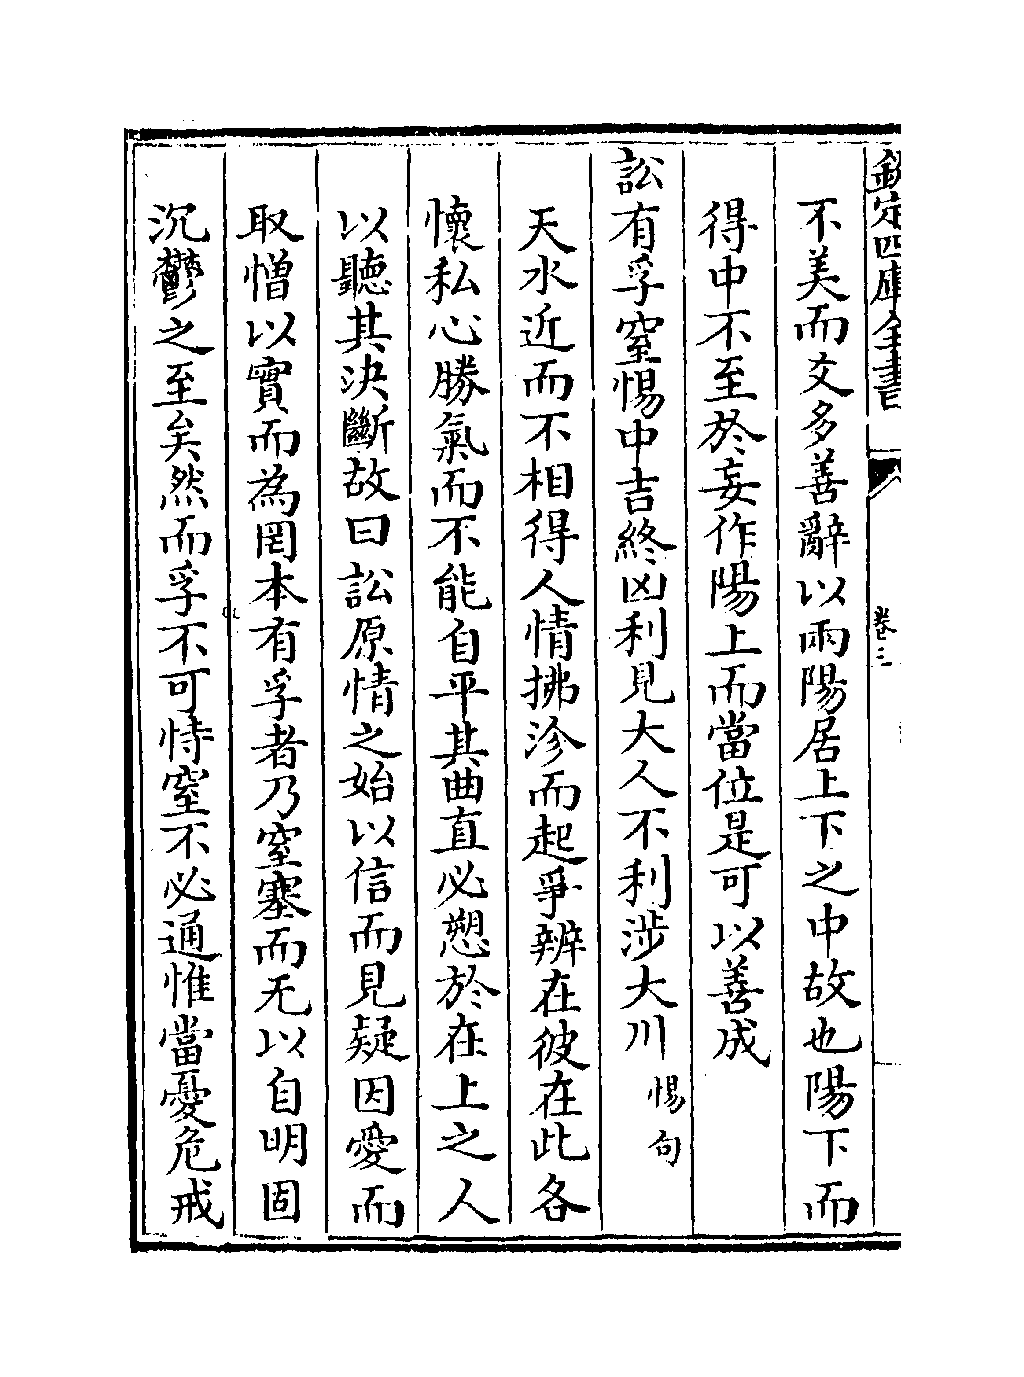 欽定四庫全書
卷三
不美而文多善辭以兩陽居上下之中故也陽下而
得中不至於妄作陽上而當位是可以善成
訟有孚窒惕中吉終凶利見大人不利涉大川 惕句
天水近而不相得人情拂沴而起爭辨在彼在此各
懷私心勝氣而不能自平其曲直必愬於在上之人
以聽其決斷故曰訟原情之始以信而見疑因愛而
取憎以實而為罔本有孚者乃窒塞而无以自明固
沉鬱之至矣然而孚不可恃窒不必通惟當憂危戒